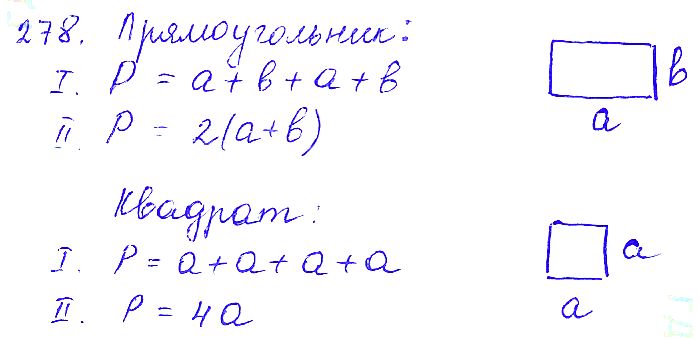 278. Прямоугольник:
I. P = a + b + a + b
b
II. P = 2(a+b)
a
Квадрат:
I. P = a + a + a + a
a
II. P = 4a
a